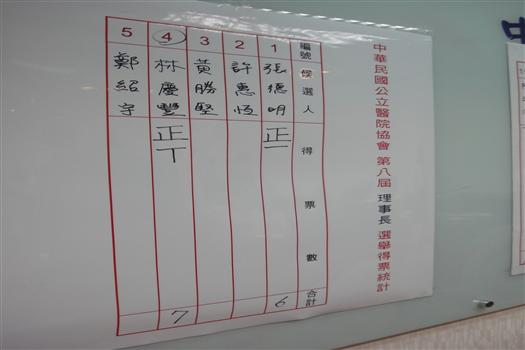 中華民國公立醫院協會 第八屆 理事長 選舉得票統計
編號 候選人 得票數 合計
1 張德明 正一 6
2 許惠恒
3 黃勝堅
4 林慶豐 正丅 7
5 鄭紹宇